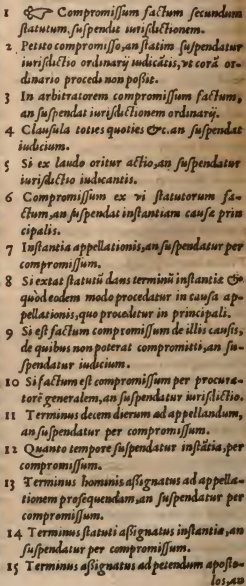 1 ☞ Compromißum factum secundum
statutum, suspendit iurisdictionem.
2 Petito compromisso, an statim suspendatur
iurisdictio ordinarij iudicātis, vt corā or-
dinario procedi non poßit.
3 In arbitratorem compromissum factum,
an suspendat iurisdictionem ordinarij.
4 Clausula toties quoties &c. an suspendat
iudicium.
5 Si ex laudo oritur actio, an suspendatur
iurisdictio iudicantis.
6 Compromissum ex vi statutorum fa-
ctum, an suspendat instantiam causæ prin
cipalis.
7 Instantia appellationis, an suspendatur per
compromissum.
8 Si extat statutū dans terminū instantiæ &
quòd eodem modo procedatur in causa ap-
pellationis, quo proceditur in principali.
9 Si est factum compromissum de illis causis,
de quibus non poterat compromitti, an su-
spendatur iudicium.
10 Si factum est compromissum per procura-
torē generalem, an suspendatur iurisdictio.
11 Terminus decem dierum ad appellandum,
an suspendatur per compromissum.
12 Quanto tempore suspendatur instātia, per
compromissum.
13 Terminus hominis aßignatus ad appella-
tionem prosequendam, an suspendatur per
compromissum.
14 Terminus statuti aßignatus instantiæ, an
suspendatur per compromissum.
15 Terminus aßignatus ad petendum aposto-
los, an